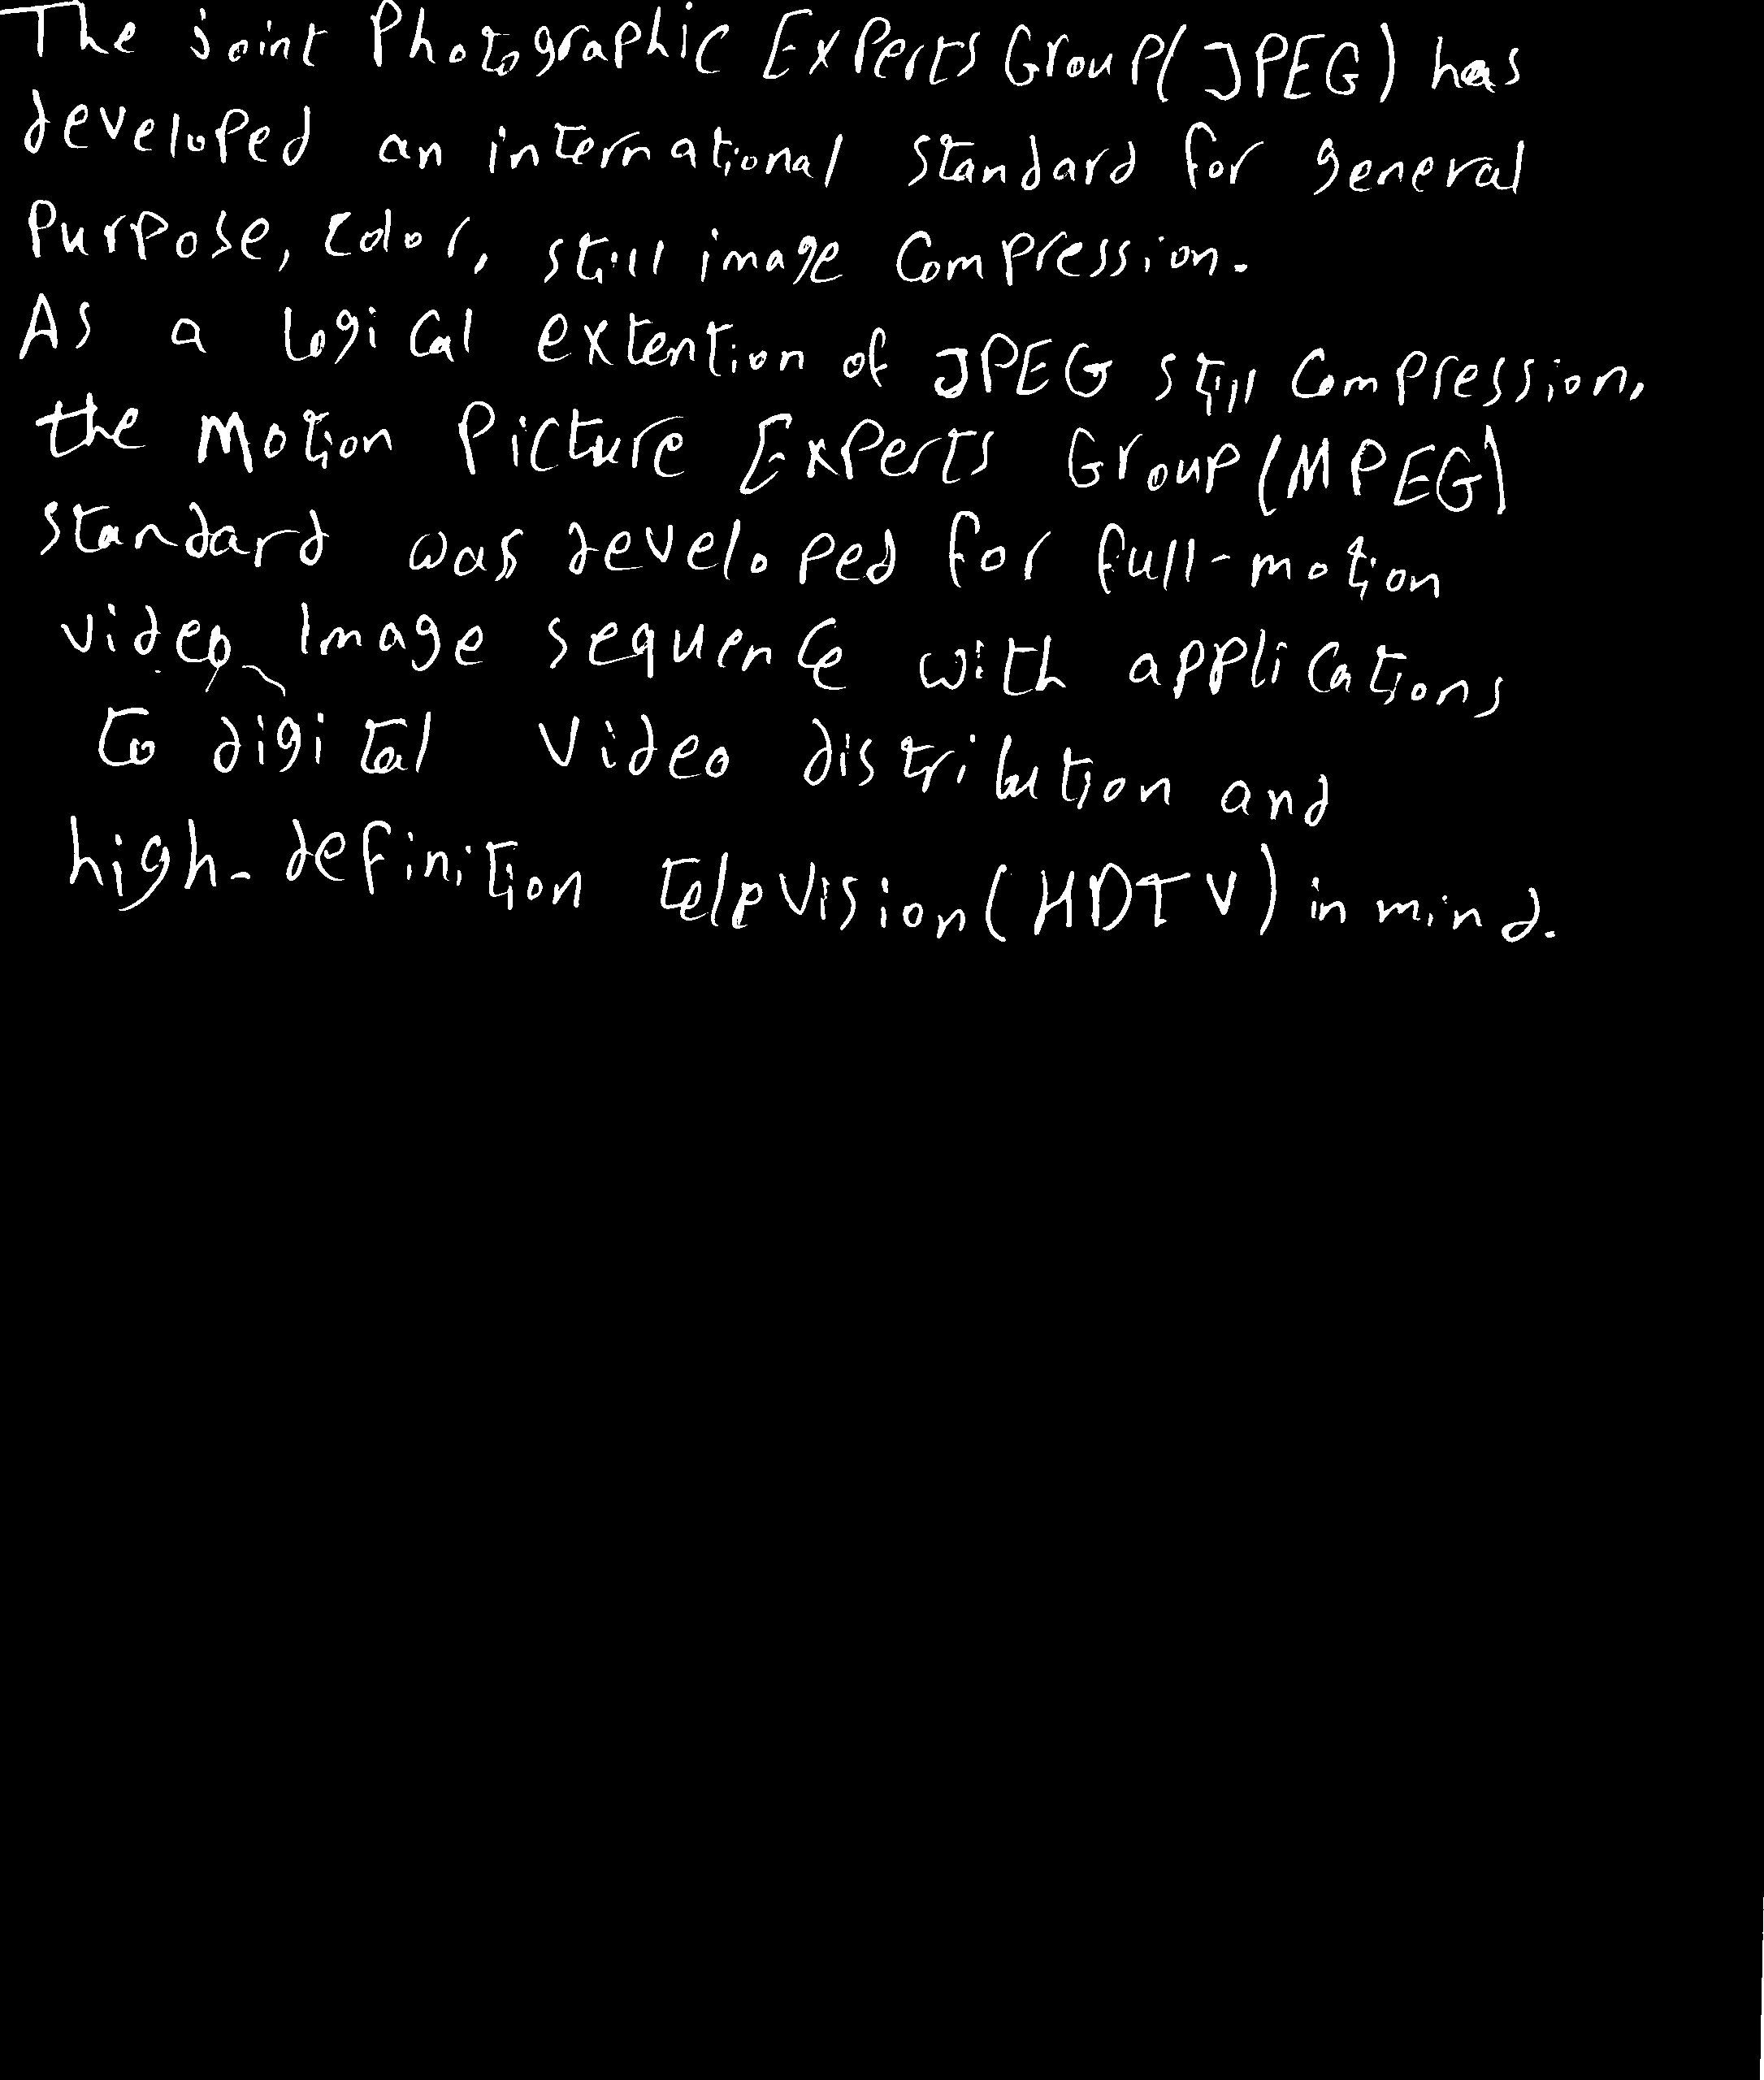 The joint Photographic Experts Group (JPEG) has
developed an international standard for general
Purpose, color, still image compression.
As a logical extention of JPEG still compression,
the Motion Picture Experts Group (MPEG)
standard was developed for full-motion
video Image sequence with applications
to digital video distribution and
high-definition television (HDTV) in mind.